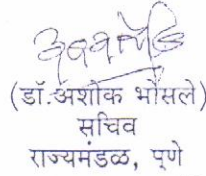 (डॉ.अशोक भोसले)
सचिव
राज्यमंडळ, पुणे